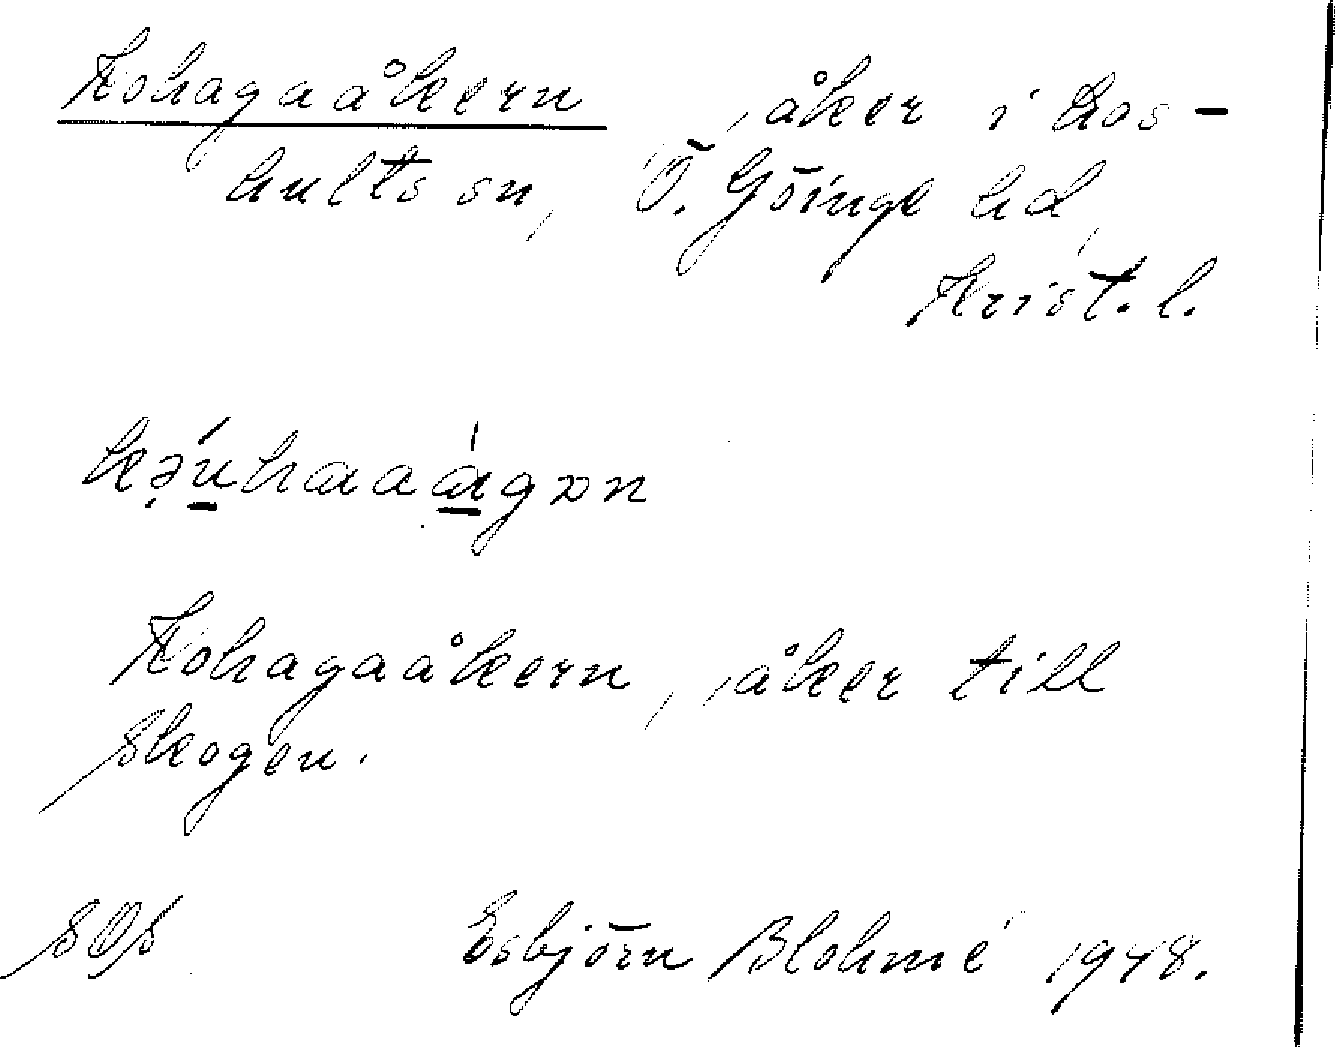 Kohagaåkern , åker i Los-
hults sn, Ö. Göinge hd,
Krist. l.
kə̣́u̱haaɑɑ́gɒn
Kohagaåkern, åker till
Skogen.
SOS Esbjörn Blohmé 1948.